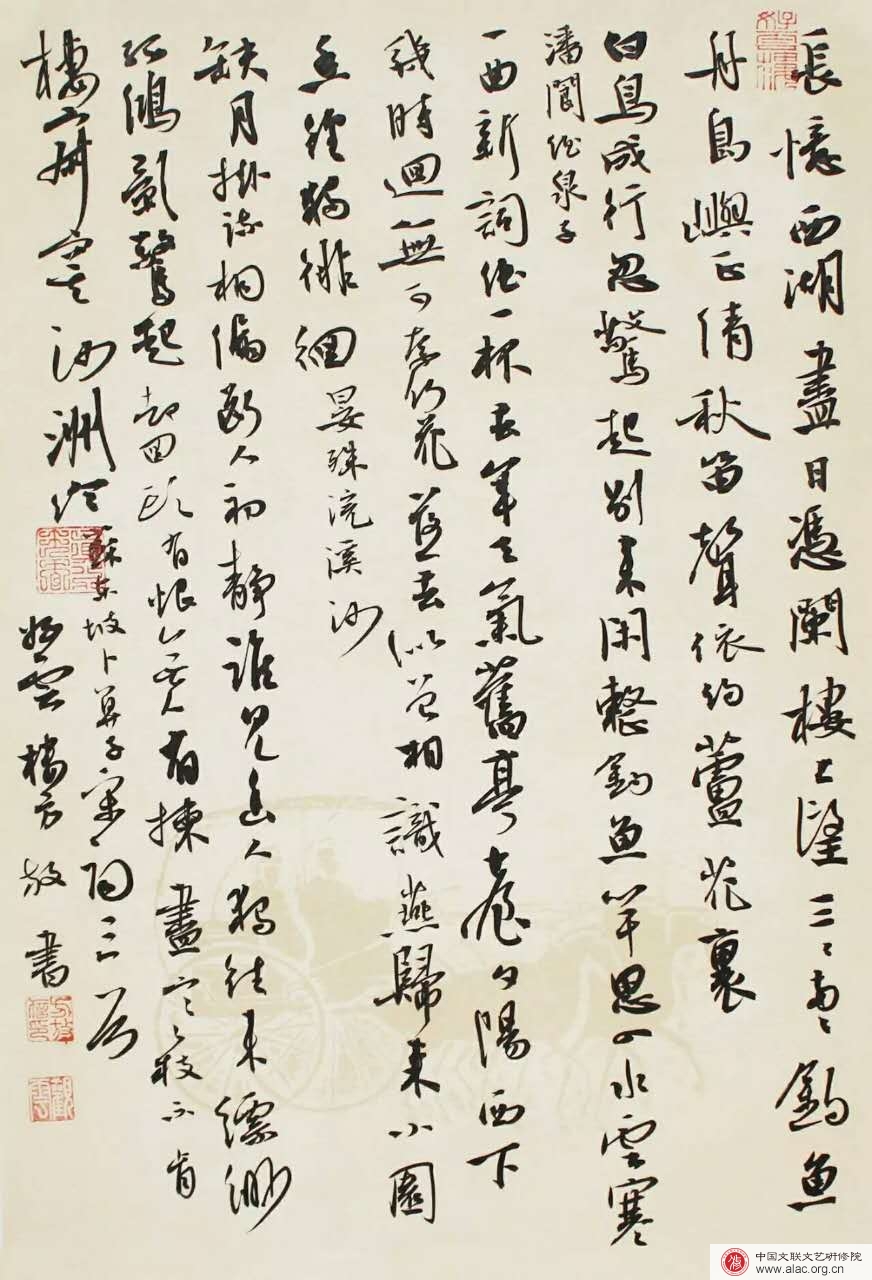 長憶西湖盡日憑闌樓上望三々兩々釣魚
舟島嶼正清秋笛聲依約蘆花裏
白鳥成行忽驚起別來閑整釣魚竿思入水雲寒
潘閬酒泉子
一曲新詞酒一杯去年天氣舊亭臺夕陽西下
幾時迴無可奈何花落去似曾相識燕歸來小園
香徑獨徘徊 晏殊浣溪沙
缺月掛疏桐漏斷人初靜誰見幽人獨往來縹緲
孤鴻影驚起却回頭有恨無人省揀盡寒枝不肯
棲寂寞沙洲冷 蘇東坡卜算子宋詞三首
好雲樓方放書
中国文联文艺研修院
www.alac.org.cn